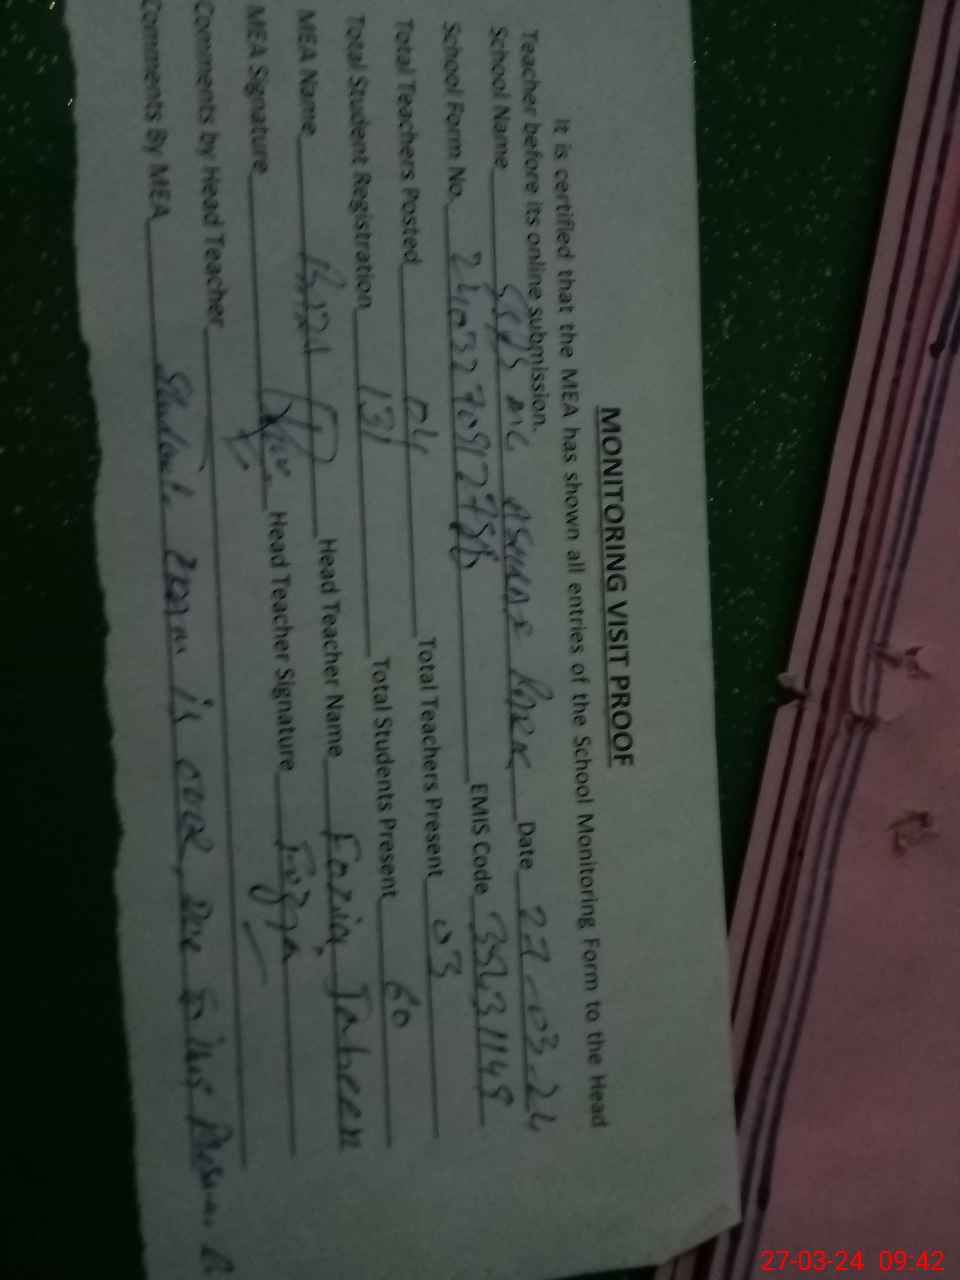 MONITORING VISIT PROOF
It is certified that the MEA has shown all entries of the School Monitoring Form to the Head
Teacher before its online submission.
School Name Park Date 27-03-24
School Form No. EMIS Code 35431149
Total Teachers Posted 04 Total Teachers Present 03
Total Student Registration 131 Total Students Present 60
MEA Name Head Teacher Name Fozia Jabeen
MEA Signature Head Teacher Signature
Comments by Head Teacher
Comments By MEA Students is over, due to this
27-03-24 09:42